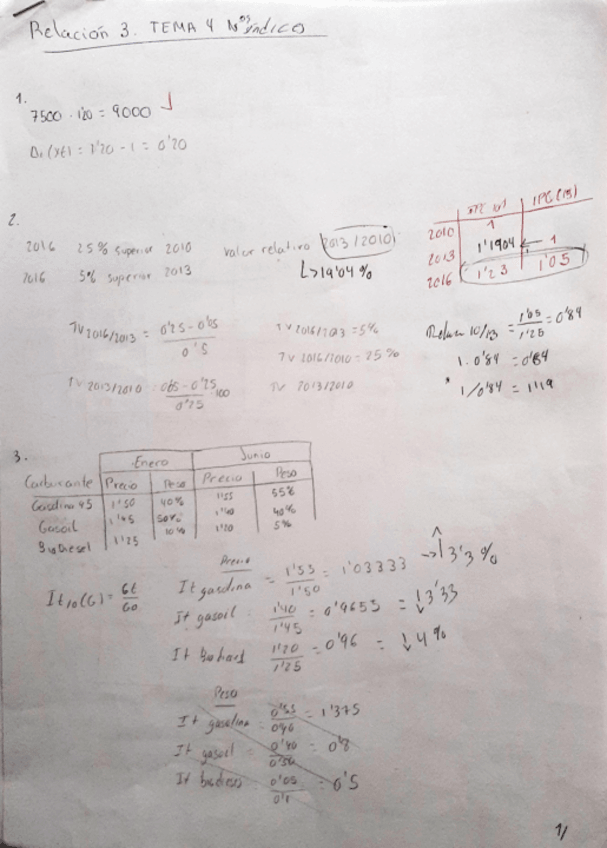 Relación 3. TEMA 4 Nos índice
1.
7500 · 1'20 = 9000
(xt) = 1'20 - 1 = 0'20
2.
2016 25% superior 2010 valor relativo 2013/2010
2016 5% superior 2013 19'04%
IPC IPC (13)
2010 1
2013 1'1904 ← 1
2016 1'23 1'05
TV 2016/2013 = 0'25 - 0'05 / 0'5 TV 2016/2013 = 5%
TV 2016/2010 = 25%
TV 2013/2010 = 0'05 - 0'25 / 0'25 · 100 TV 2013/2010
10/13 = 1'05 / 1'25 = 0'84
1 · 0'84 = 0'84
1/0'84 = 1'19
3.
Enero Junio
Carburante Precio Peso Precio Peso
Gasolina 95 1'50 40% 1'55 55%
Gasoil 1'45 50% 1'40 40%
BioDiesel 1'25 10% 1'20 5%
Precio
It/0(G) = Gt / G0
It gasolina = 1'55 / 1'50 = 1'03333 → ↑3'3%
It gasoil 1'40 / 1'45 = 0'9655 = ↓3'33
It 1'20 / 1'25 = 0'96 = ↓4%
Peso
It gasolina = 0'55 / 0'40 = 1'375
It gasoil = 0'40 / 0'50 = 0'8
It biodiesel 0'05 / 0'1 = 0'5
1/